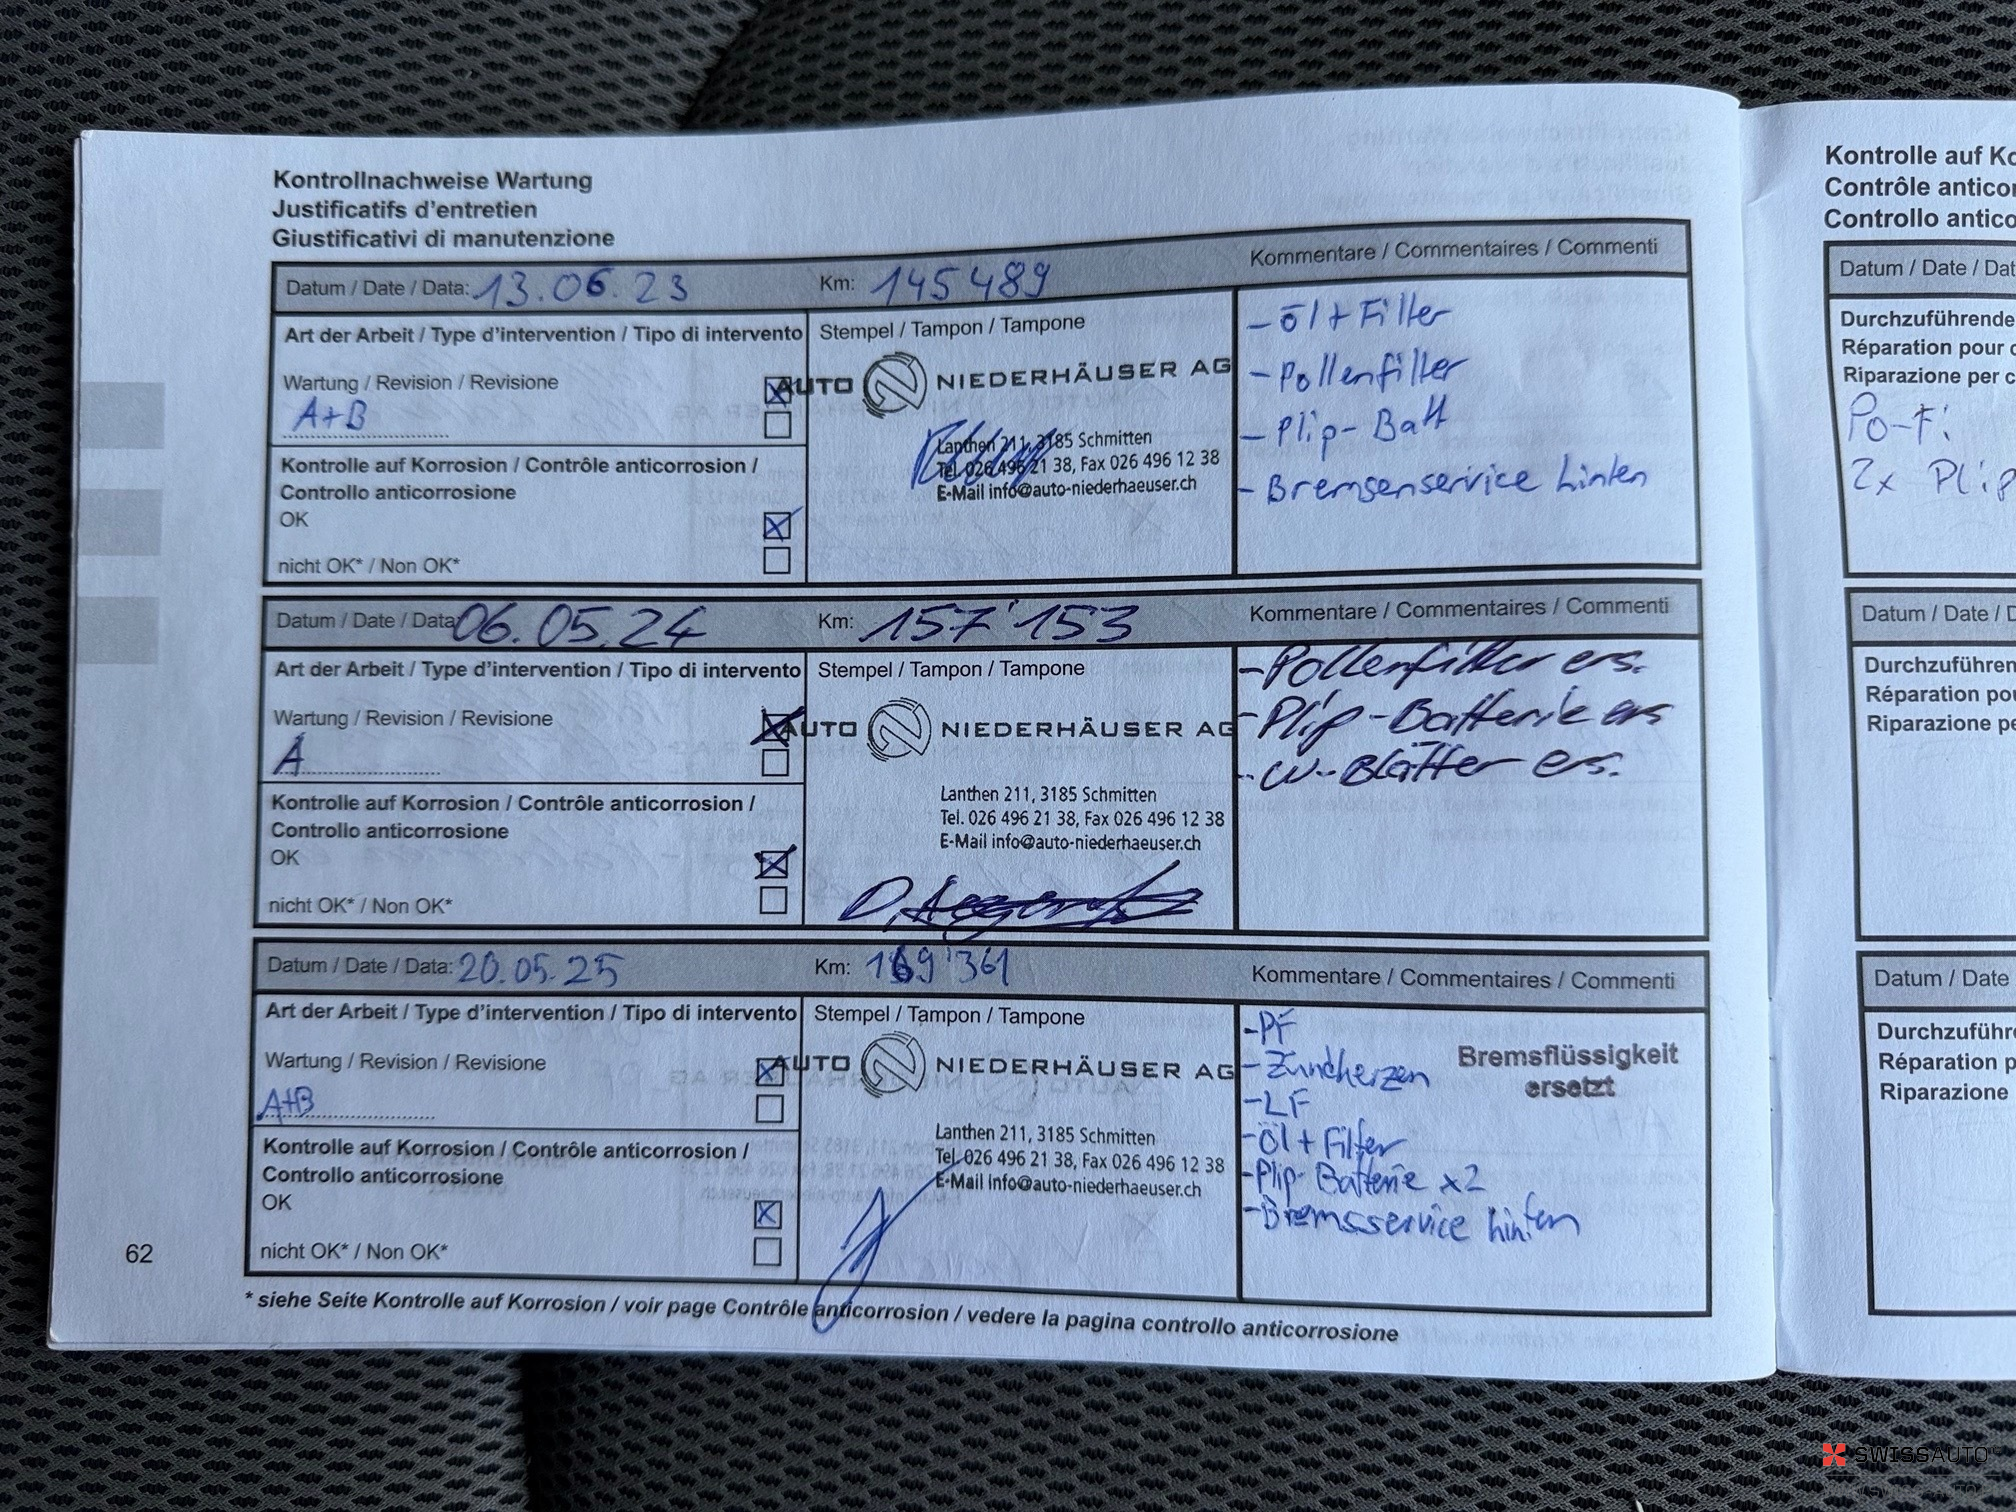 Kontrollnachweise Wartung
Justificatifs d'entretien
Giustificativi di manutenzione
Datum / Date / Data: 13.06.23 Km: 145489 Kommentare / Commentaires / Commenti
Art der Arbeit / Type d'intervention / Tipo di intervento
Wartung / Revision / Revisione
A+B
Kontrolle auf Korrosion / Contrôle anticorrosion /
Controllo anticorrosione
OK
nicht OK* / Non OK*
Stempel / Tampon / Tampone
AUTO NIEDERHÄUSER AG
Lanthen 211, 3185 Schmitten
Tel. 026 496 21 38, Fax 026 496 12 38
E-Mail info@auto-niederhaeuser.ch
- Öl + Filter
- Pollenfilter
- Plip-Batt
- Bremsenservice hinten
Datum / Date / Data: 06.05.24 Km: 157'153 Kommentare / Commentaires / Commenti
Art der Arbeit / Type d'intervention / Tipo di intervento
Wartung / Revision / Revisione
A
Kontrolle auf Korrosion / Contrôle anticorrosion /
Controllo anticorrosione
OK
nicht OK* / Non OK*
Stempel / Tampon / Tampone
AUTO NIEDERHÄUSER AG
Lanthen 211, 3185 Schmitten
Tel. 026 496 21 38, Fax 026 496 12 38
E-Mail info@auto-niederhaeuser.ch
- Pollenfilter ers.
- Plip-Batterie ers
- W-Blätter ers.
Datum / Date / Data: 20.05.25 Km: 169'361 Kommentare / Commentaires / Commenti
Art der Arbeit / Type d'intervention / Tipo di intervento
Wartung / Revision / Revisione
A+B
Kontrolle auf Korrosion / Contrôle anticorrosion /
Controllo anticorrosione
OK
nicht OK* / Non OK*
Stempel / Tampon / Tampone
AUTO NIEDERHÄUSER AG
Lanthen 211, 3185 Schmitten
Tel. 026 496 21 38, Fax 026 496 12 38
E-Mail info@auto-niederhaeuser.ch
- PF
- Zündkerzen
- LF
- Öl + Filter
- Plip-Batterie x2
- Bremsservice hinten
Bremsflüssigkeit
ersetzt
62
* siehe Seite Kontrolle auf Korrosion / voir page Contrôle anticorrosion / vedere la pagina controllo anticorrosione
Kontrolle auf Ko
Contrôle anticor
Controllo antico
Datum / Date / Dat
Durchzuführende
Réparation pour c
Riparazione per c
Po-Fi
2x Plip
Datum / Date / D
Durchzuführen
Réparation pou
Riparazione pe
Datum / Date
Durchzuführ
Réparation p
Riparazione
SWISSAUTO